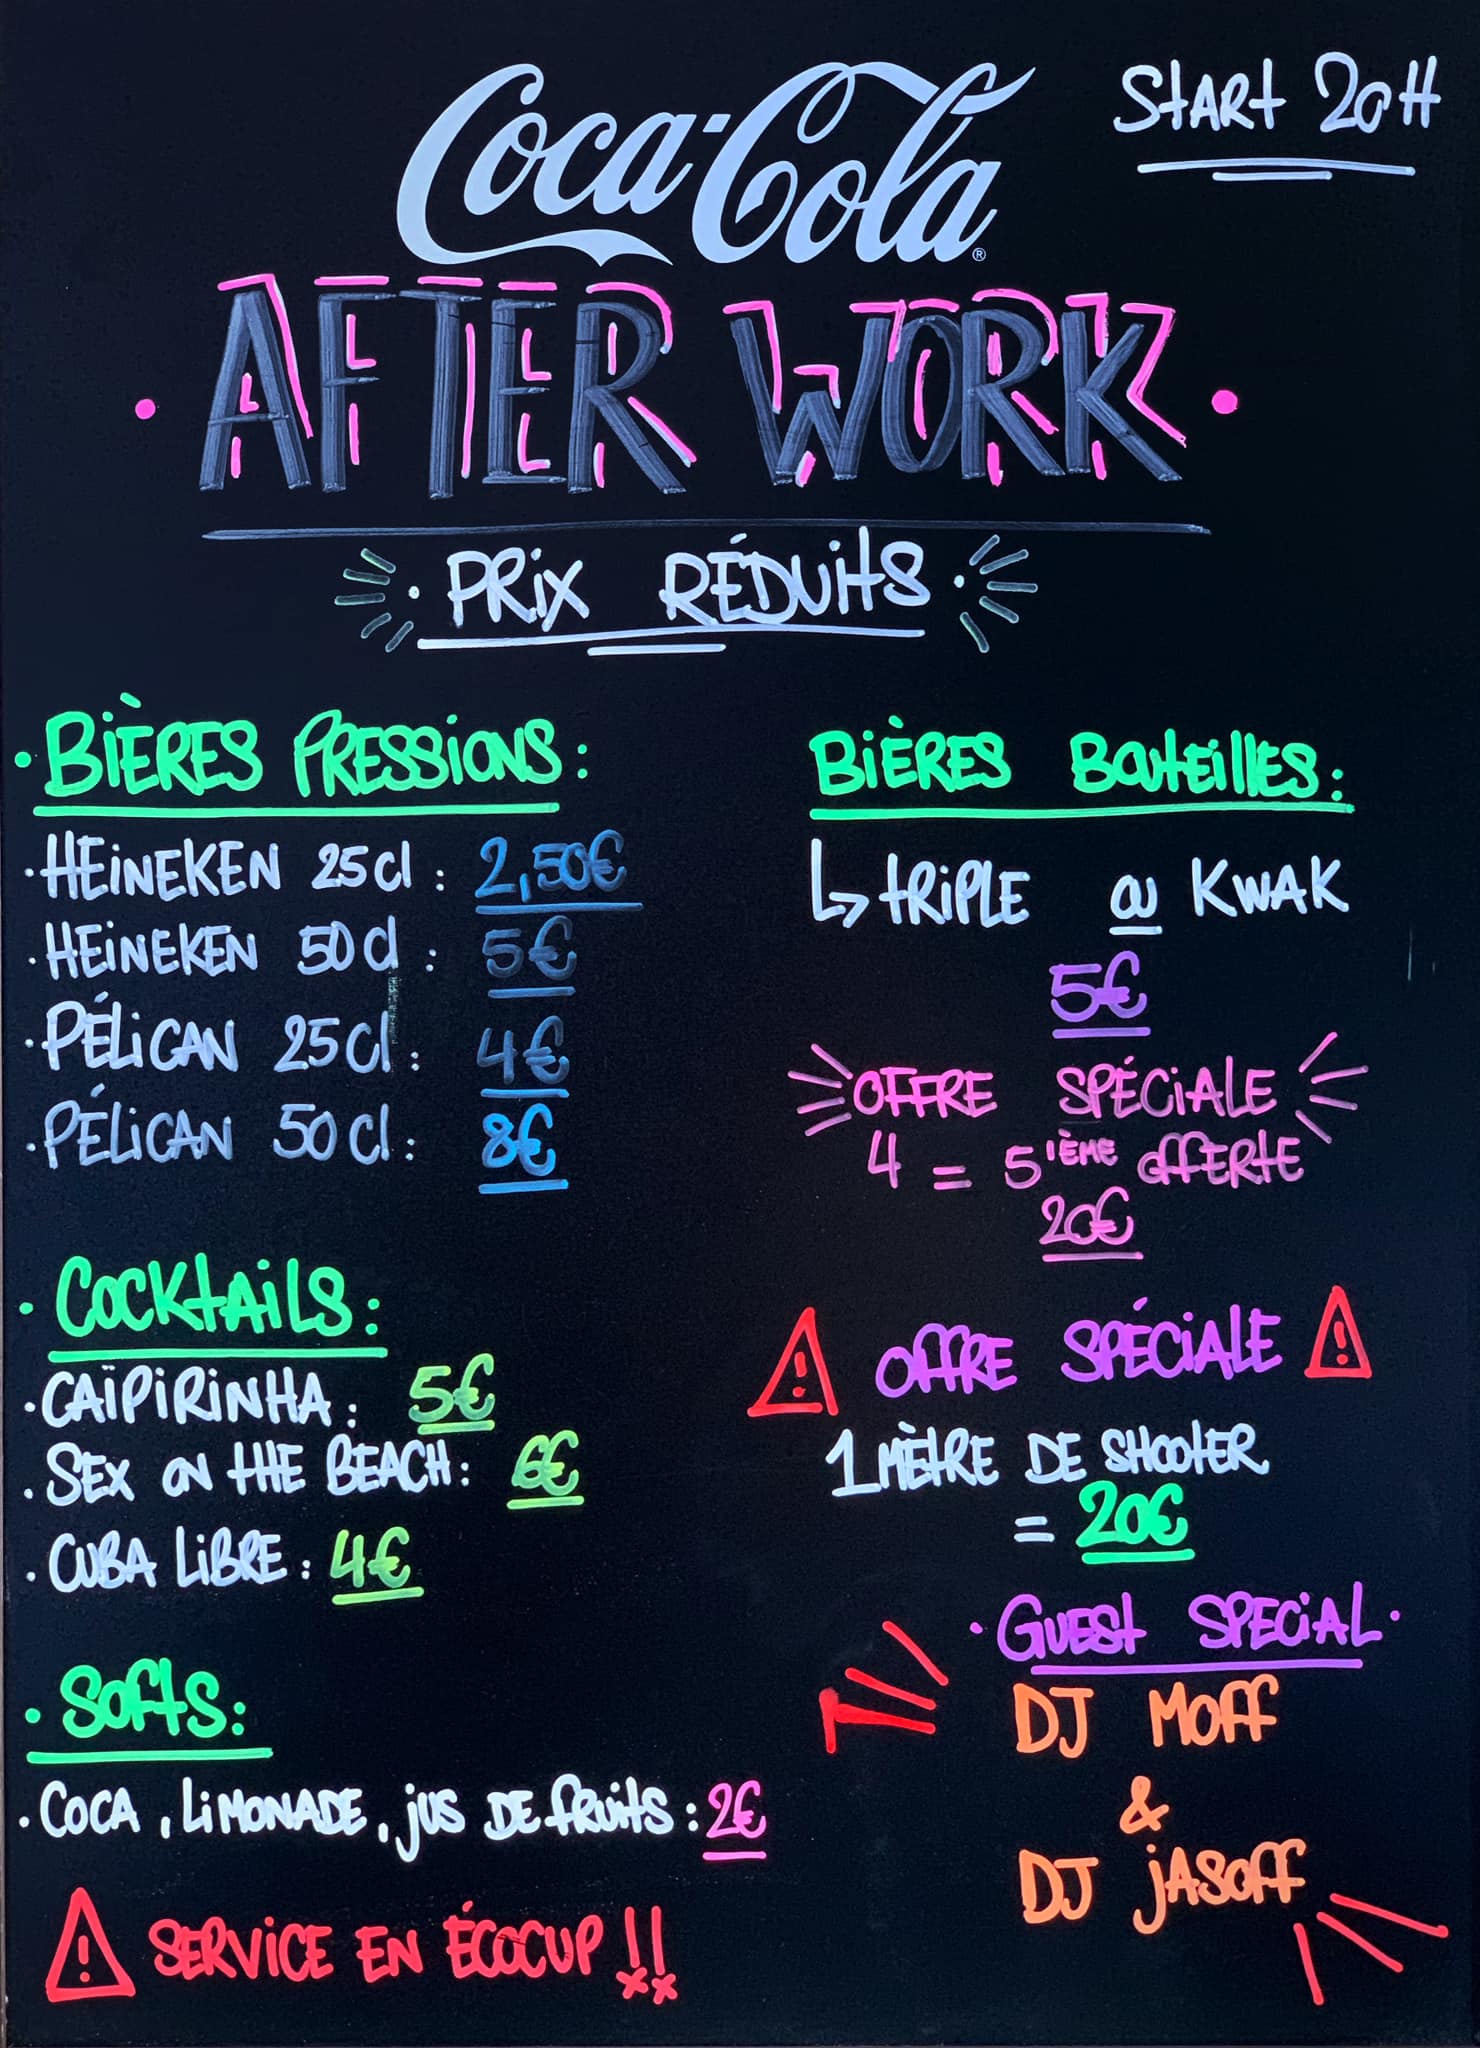 Coca-Cola®
START 20H
AFTER WORK
PRIX RÉDUITS
BIÈRES PRESSIONS :
HEINEKEN 25cl : 2,50€
HEINEKEN 50cl : 5€
PÉLICAN 25cl : 4€
PÉLICAN 50cl : 8€
COCKTAILS :
CAÏPIRINHA : 5€
SEX ON THE BEACH : 6€
CUBA LIBRE : 4€
SOFTS :
COCA, LIMONADE, JUS DE FRUITS : 2€
SERVICE EN ÉCOCUP !!
BIÈRES BOUTEILLES :
↳ TRIPLE OU KWAK
5€
OFFRE SPÉCIALE
4 = 5IÈME OFFERTE
20€
OFFRE SPÉCIALE
1 MÈTRE DE SHOOTER
= 20€
GUEST SPECIAL
DJ MOFF
&
DJ JASOFF